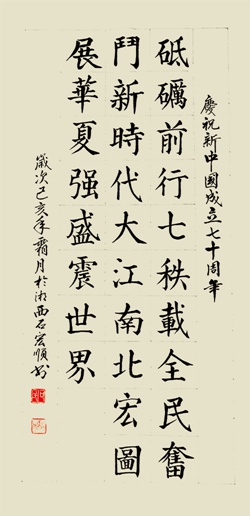 慶祝新中國成立七十周年
砥礪前行七秩載全民奮
鬥新時代大江南北宏圖
展華夏强盛震世界
歲次己亥年霜月於湘西石宏順书